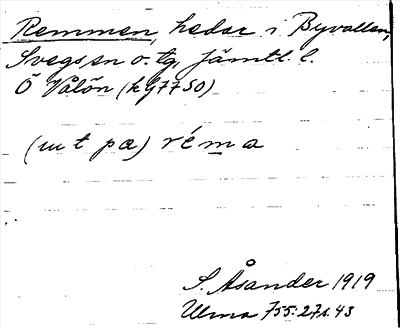 Remmen, hedar i Byvallen,
Svegs sn o. tg, Jämtl. l.
Ö Vålön (hg 7750)
(ut pa) réma
S. Åsander 1919
Ulma 755:271.43